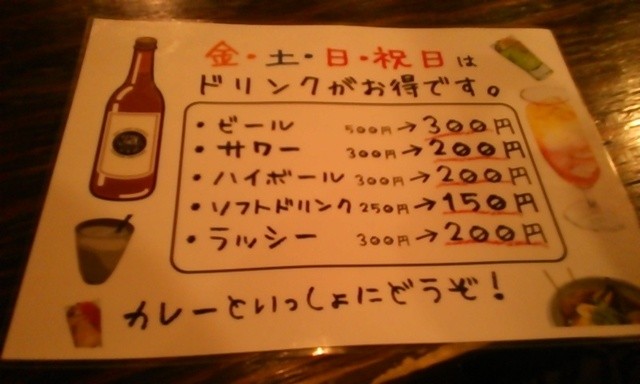 金・土・日・祝日は
ドリンクがお得です。
・ビール 500円→300円
・サワー 300円→200円
・ハイボール 300円→200円
・ソフトドリンク 250円→150円
・ラルシー 300円→200円
カレーといっしょにどうぞ!